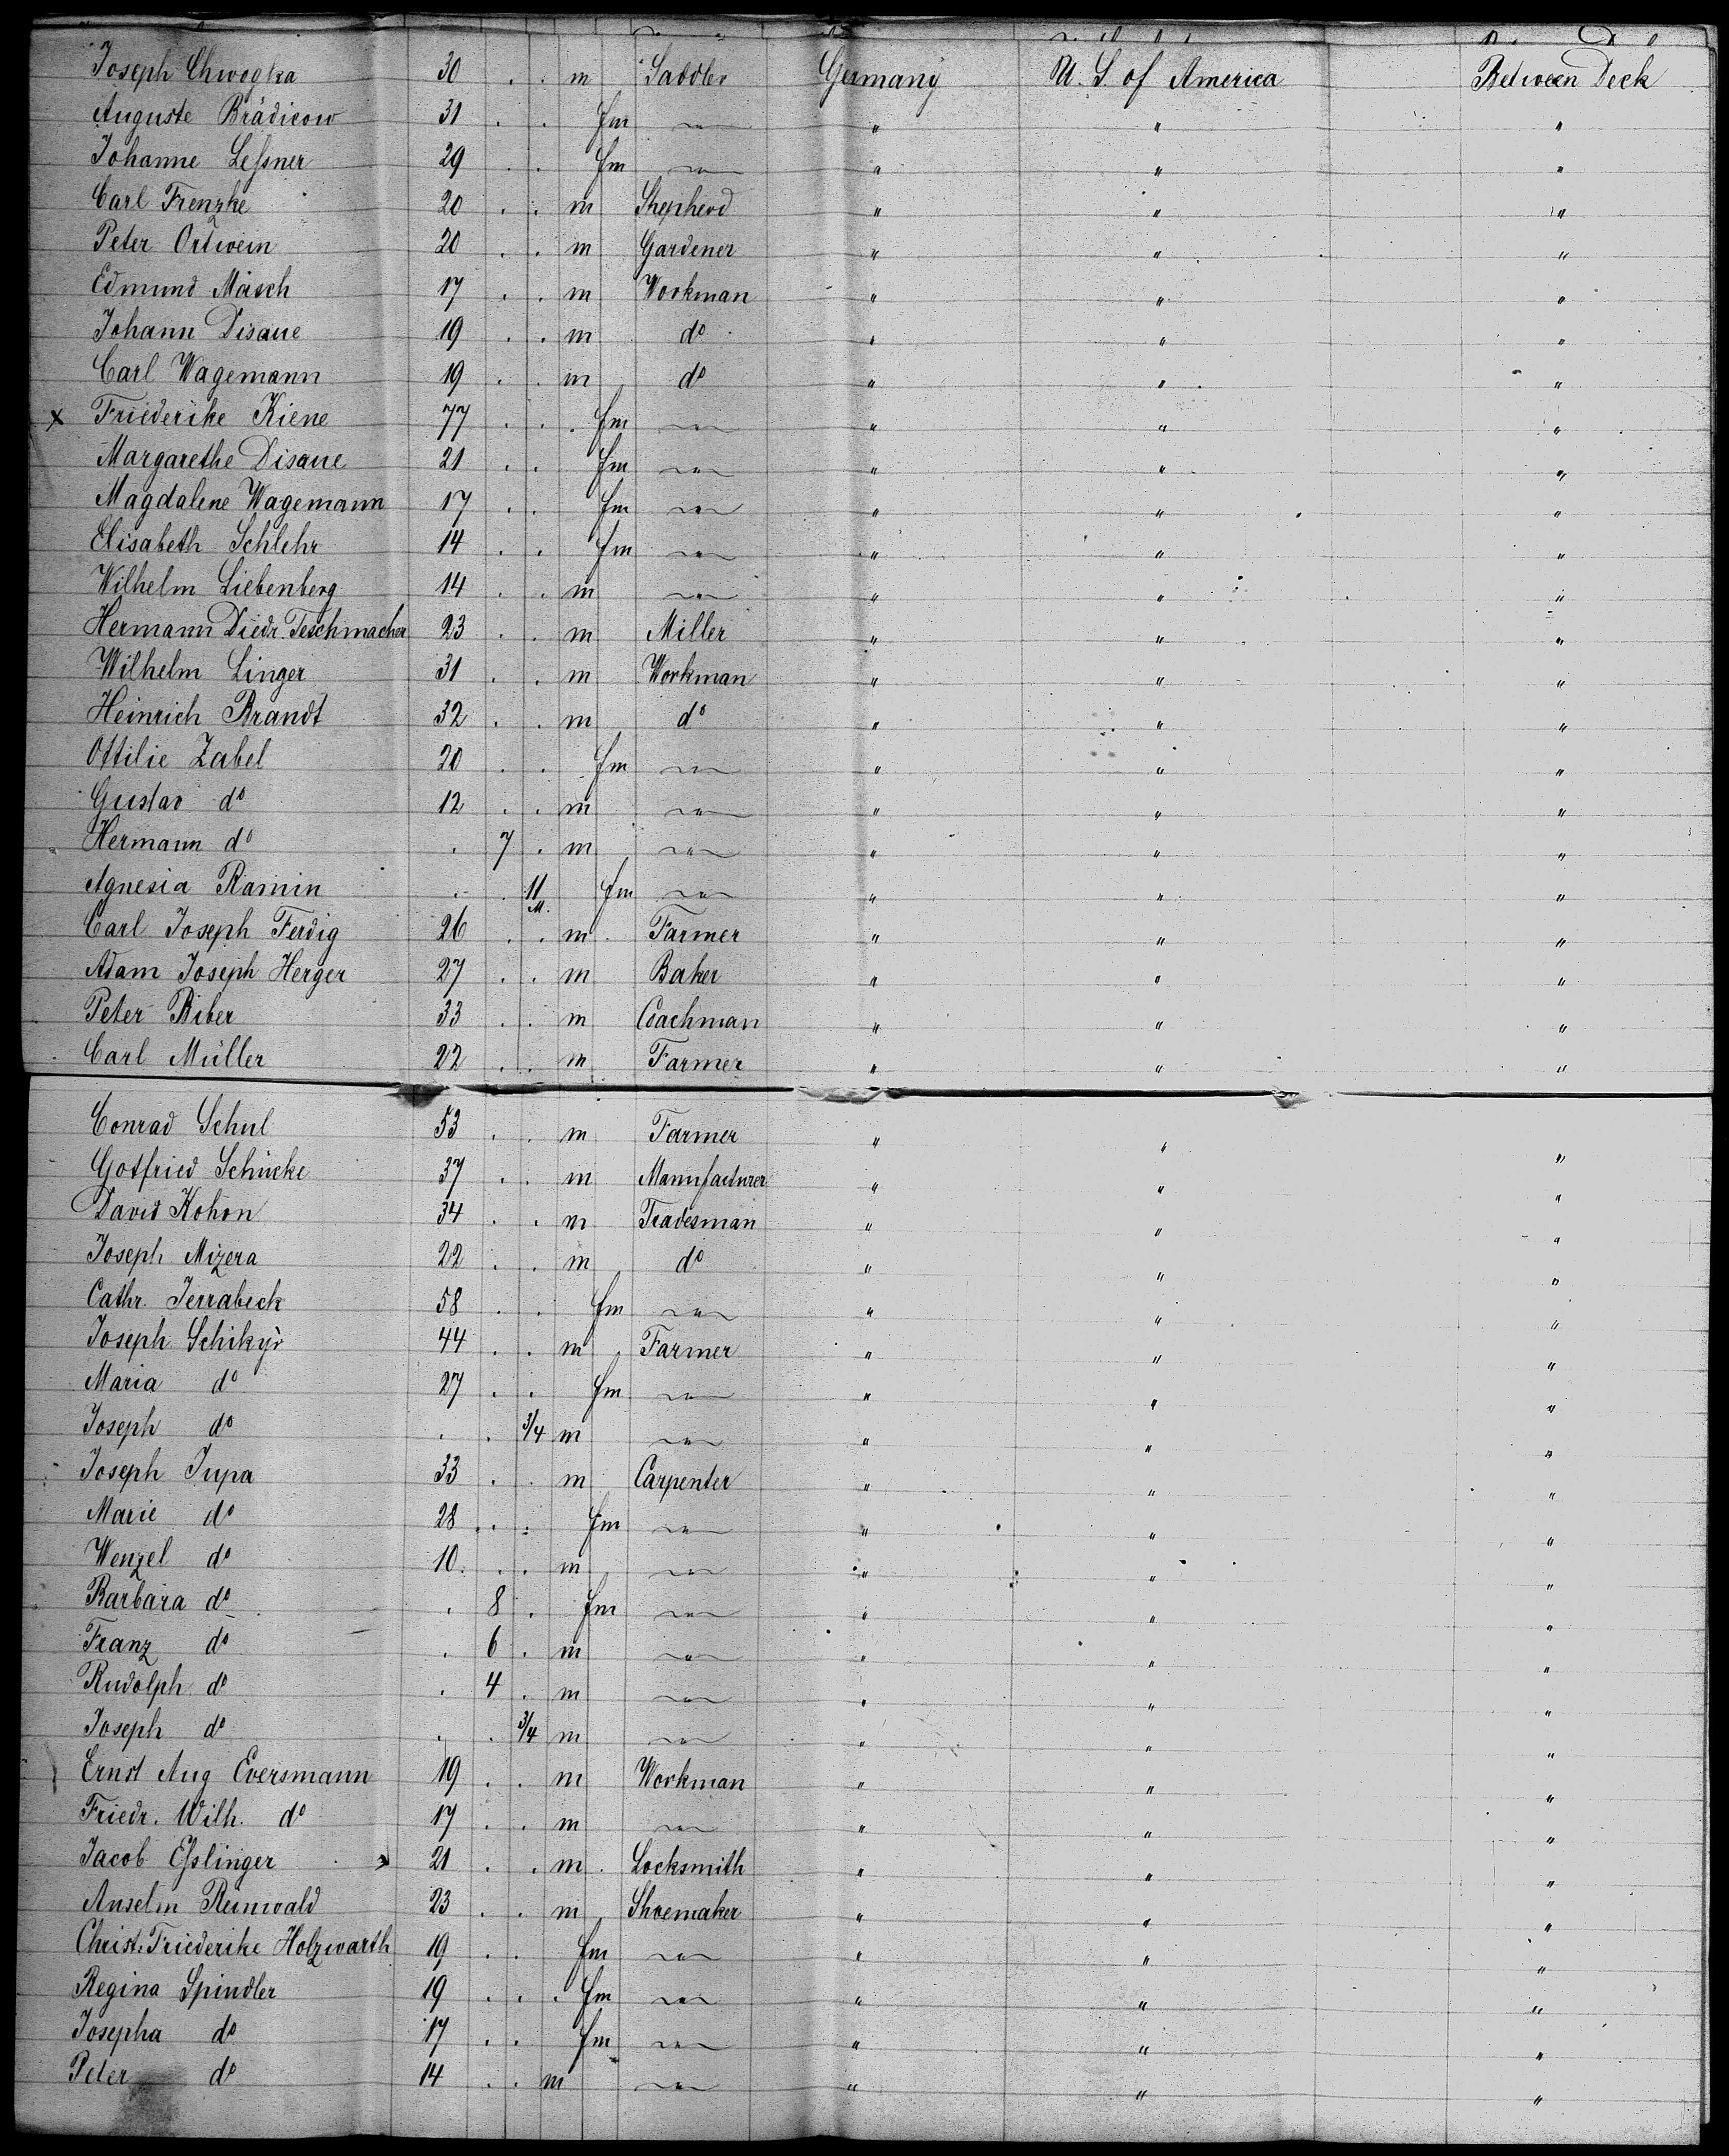 Joseph Chwogka 30 . . m Saddler Germany U. S. of America Between Deck
Auguste Brädicow 31 . . fm " " "
Johanne Leſsner 29 . . fm " " "
Carl Frenzke 20 . . m Shepherd " " "
Peter Ortwein 20 . . m Gardener " " "
Edmund Mäsch 17 . . m Workman " " "
Johann Disaue 19 . . m do " " "
Carl Wagemann 19 . . m do " " "
x Friederike Kiene 77 . . . fm " " "
Margarethe Disaue 21 . . fm " " "
Magdalene Wagemann 17 . . fm " " "
Elisabeth Schlehr 14 . . fm " " "
Wilhelm Liebenberg 14 . . m " " "
Hermann Diedr. Teschmacher 23 . . m Miller " " "
Wilhelm Linger 31 . . m Workman " " "
Heinrich Brandt 32 . . m do " " "
Ottilie Zabel 20 . . fm " " "
Gustav do 12 . . m " " "
Hermann do . 7 . m " " "
Agnesia Ramin . . 11 M. fm " " "
Carl Joseph Ferdig 26 . . m Farmer " " "
Adam Joseph Herger 27 . . m Baker " " "
Peter Biber 33 . . m Coachman " " "
Carl Müller 22 . . m Farmer " " "
Conrad Schul 53 . . m Farmer " " "
Gotfried Schücke 37 . . m Manufacturer " " "
David Kohon 34 . . m Tradesman " " "
Joseph Mizera 22 . . m do " " "
Cathr. Jerrabeck 58 . . fm " " "
Joseph Schikyr 44 . . m Farmer " " "
Maria do 27 . . fm " " "
Joseph do . . 3/4 m " " "
Joseph Jupa 33 . . m Carpenter " " "
Marie do 28 . . fm " " "
Wenzel do 10 . . m " " "
Barbara do . 8 . fm " " "
Franz do . 6 . m " " "
Rudolph do . 4 . m " " "
Joseph do . . 3/4 m " " "
Ernst Aug Eversmann 19 . . m Workman " " "
Friedr. Wilh. do 17 . . m " " "
Jacob Eſslinger 21 . . m Locksmith " " "
Anselm Reinwald 23 . . m Shoemaker " " "
Christ. Friederike Holzwarth 19 . . fm " " "
Regina Spindler 19 . . . fm " " "
Josepha do 17 . . fm " " "
Peter do 14 . . m " " "